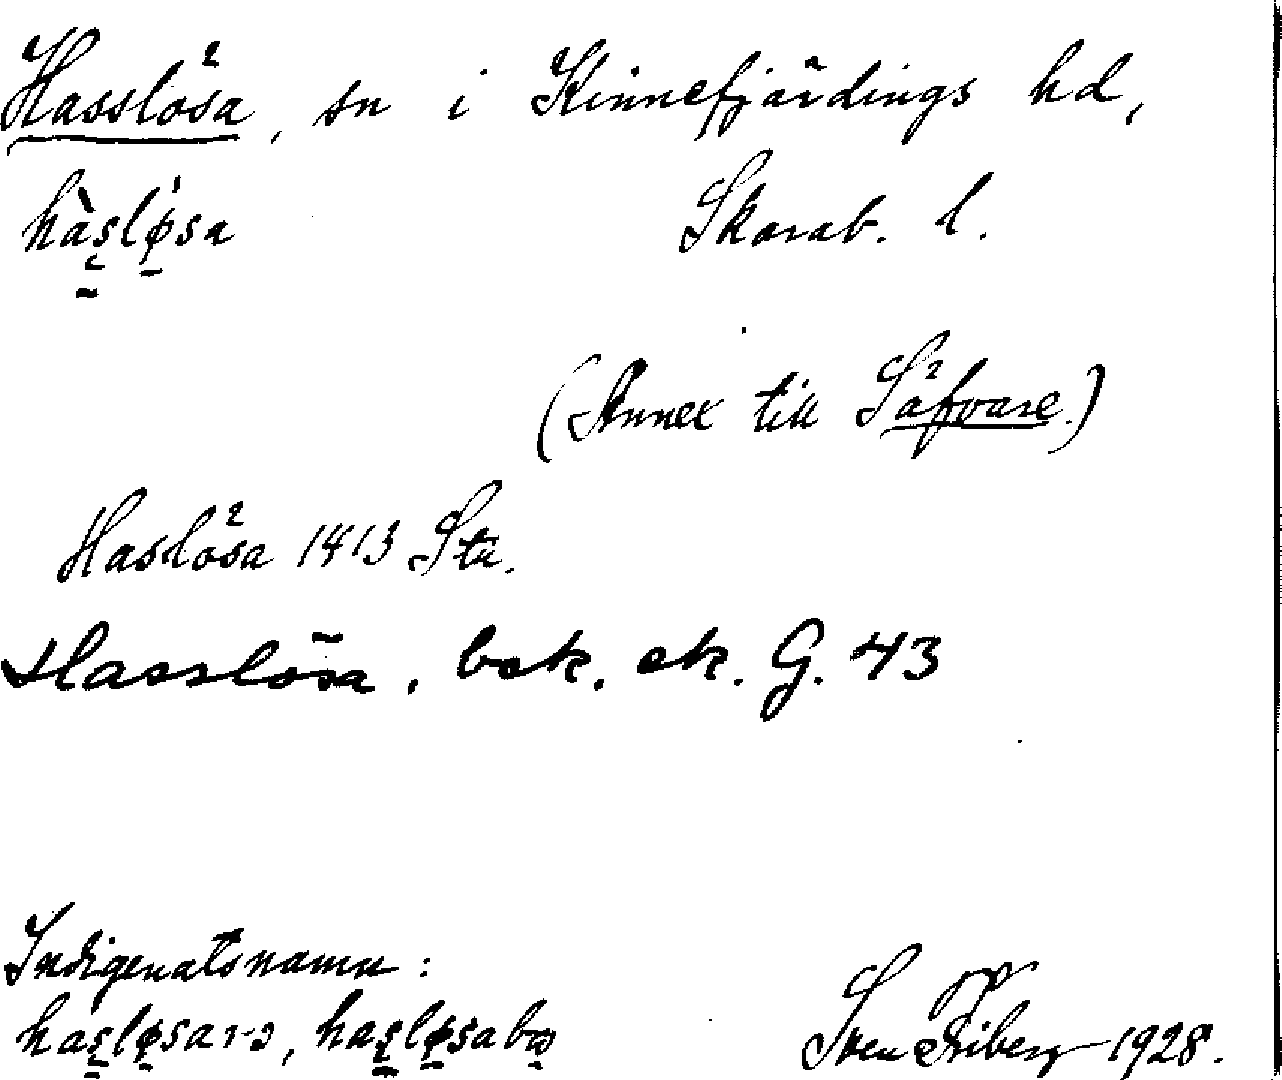 Hasslösa, sn i Kinnefjärdings hd,
hàslǿsa Skarab. l.
(Annex till Säfvare.)
Haslösa 1413 Sta.
Hasslösa, bok. ek. G. 43
Indigenatsnamn:
hasløsarə, hasløsabo
Sven Friberg 1928.